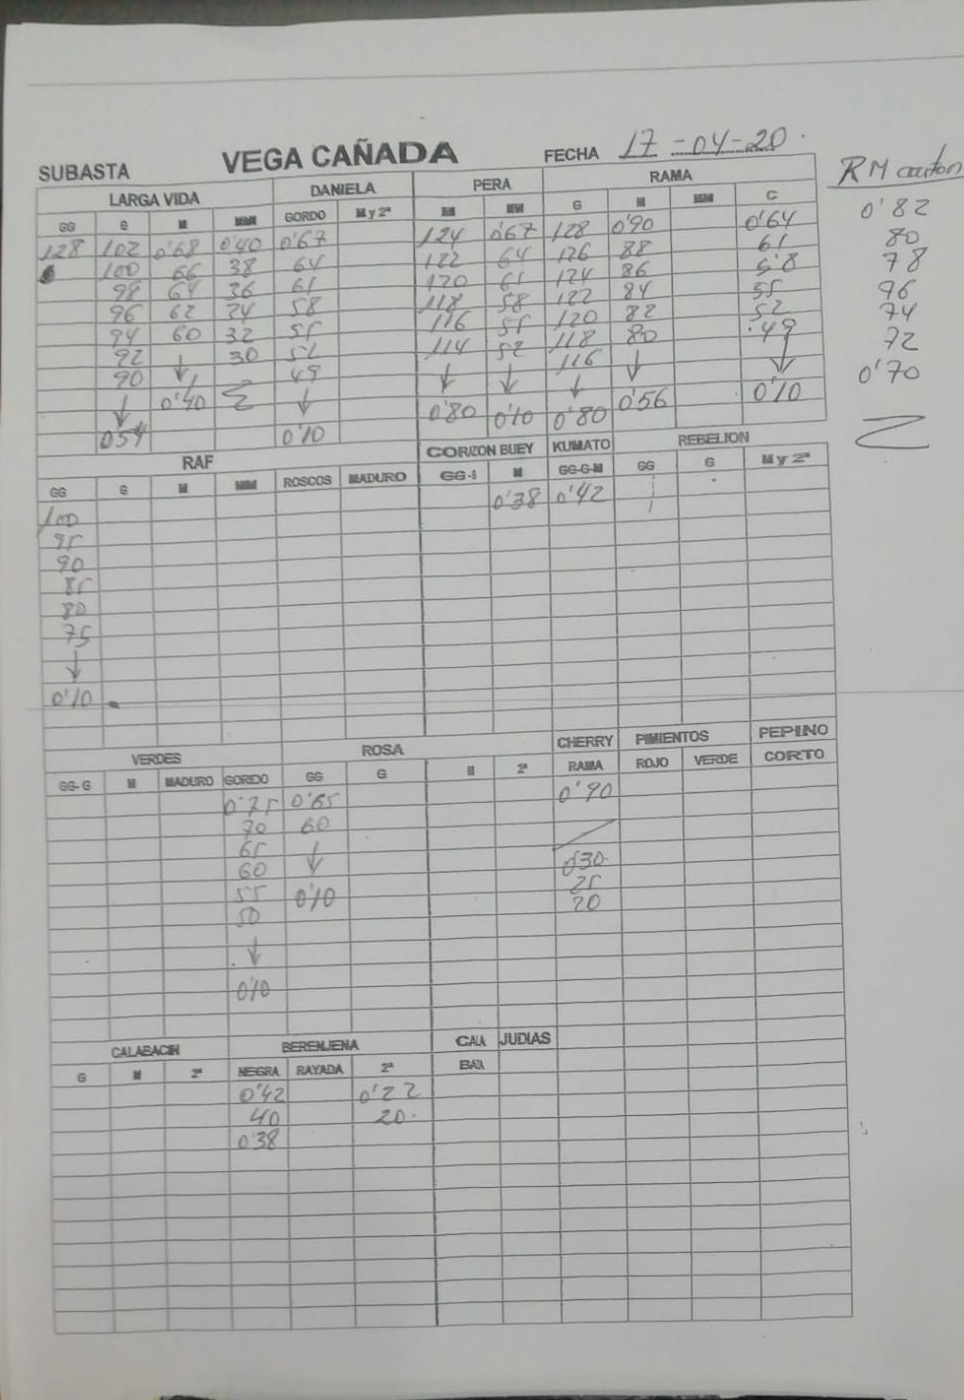 SUBASTA VEGA CAÑADA FECHA 17-04-20.
RM carton
LARGA VIDA DANIELA PERA RAMA
GG G M MM GORDO M y 2ª M MM G M MM C
128 102 0'68 0'40 0'67 124 0'67 128 0'90 0'64 0'82
100 66 38 64 122 64 126 88 61 80
98 64 36 61 120 61 124 86 58 78
96 62 24 58 118 58 122 84 55 76
94 60 32 55 116 55 120 82 52 74
92 ↓ 30 52 114 52 118 80 49 72
90 49 ↓ ↓ 116 ↓ ↓ 0'70
↓ 0'40 ↓ 0'80 0'10 ↓ 0'80 0'56 0'10
054 0'10
RAF CORZON BUEY KUMATO REBELION
GG G M MM ROSCOS MADURO GG-G M GG-G-M GG G M y 2ª
100 0'38 0'42
95
90
85
80
75
↓
0'10
VERDES ROSA CHERRY PIMIENTOS PEPINO
GG-G M MADURO GORDO GG G M 2ª RAMA ROJO VERDE CORTO
0'75 0'65 0'90
70 60
65 ↓ 030
60 25
55 0'10 20
50
↓
0'10
CALABACIN BERENJENA CALA JUDIAS
G M 2ª NEGRA RAYADA 2ª BAA
0'42 0'22
40 20.
0'38